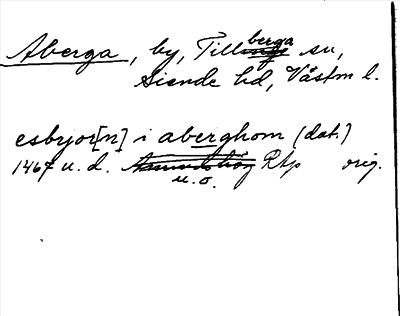 Aberga, by, Tillberga sn,
Siende hd, Västm l.
esbjor[n] i aberghom (dat.)
1467 u. d. u. o. Rtp orig.